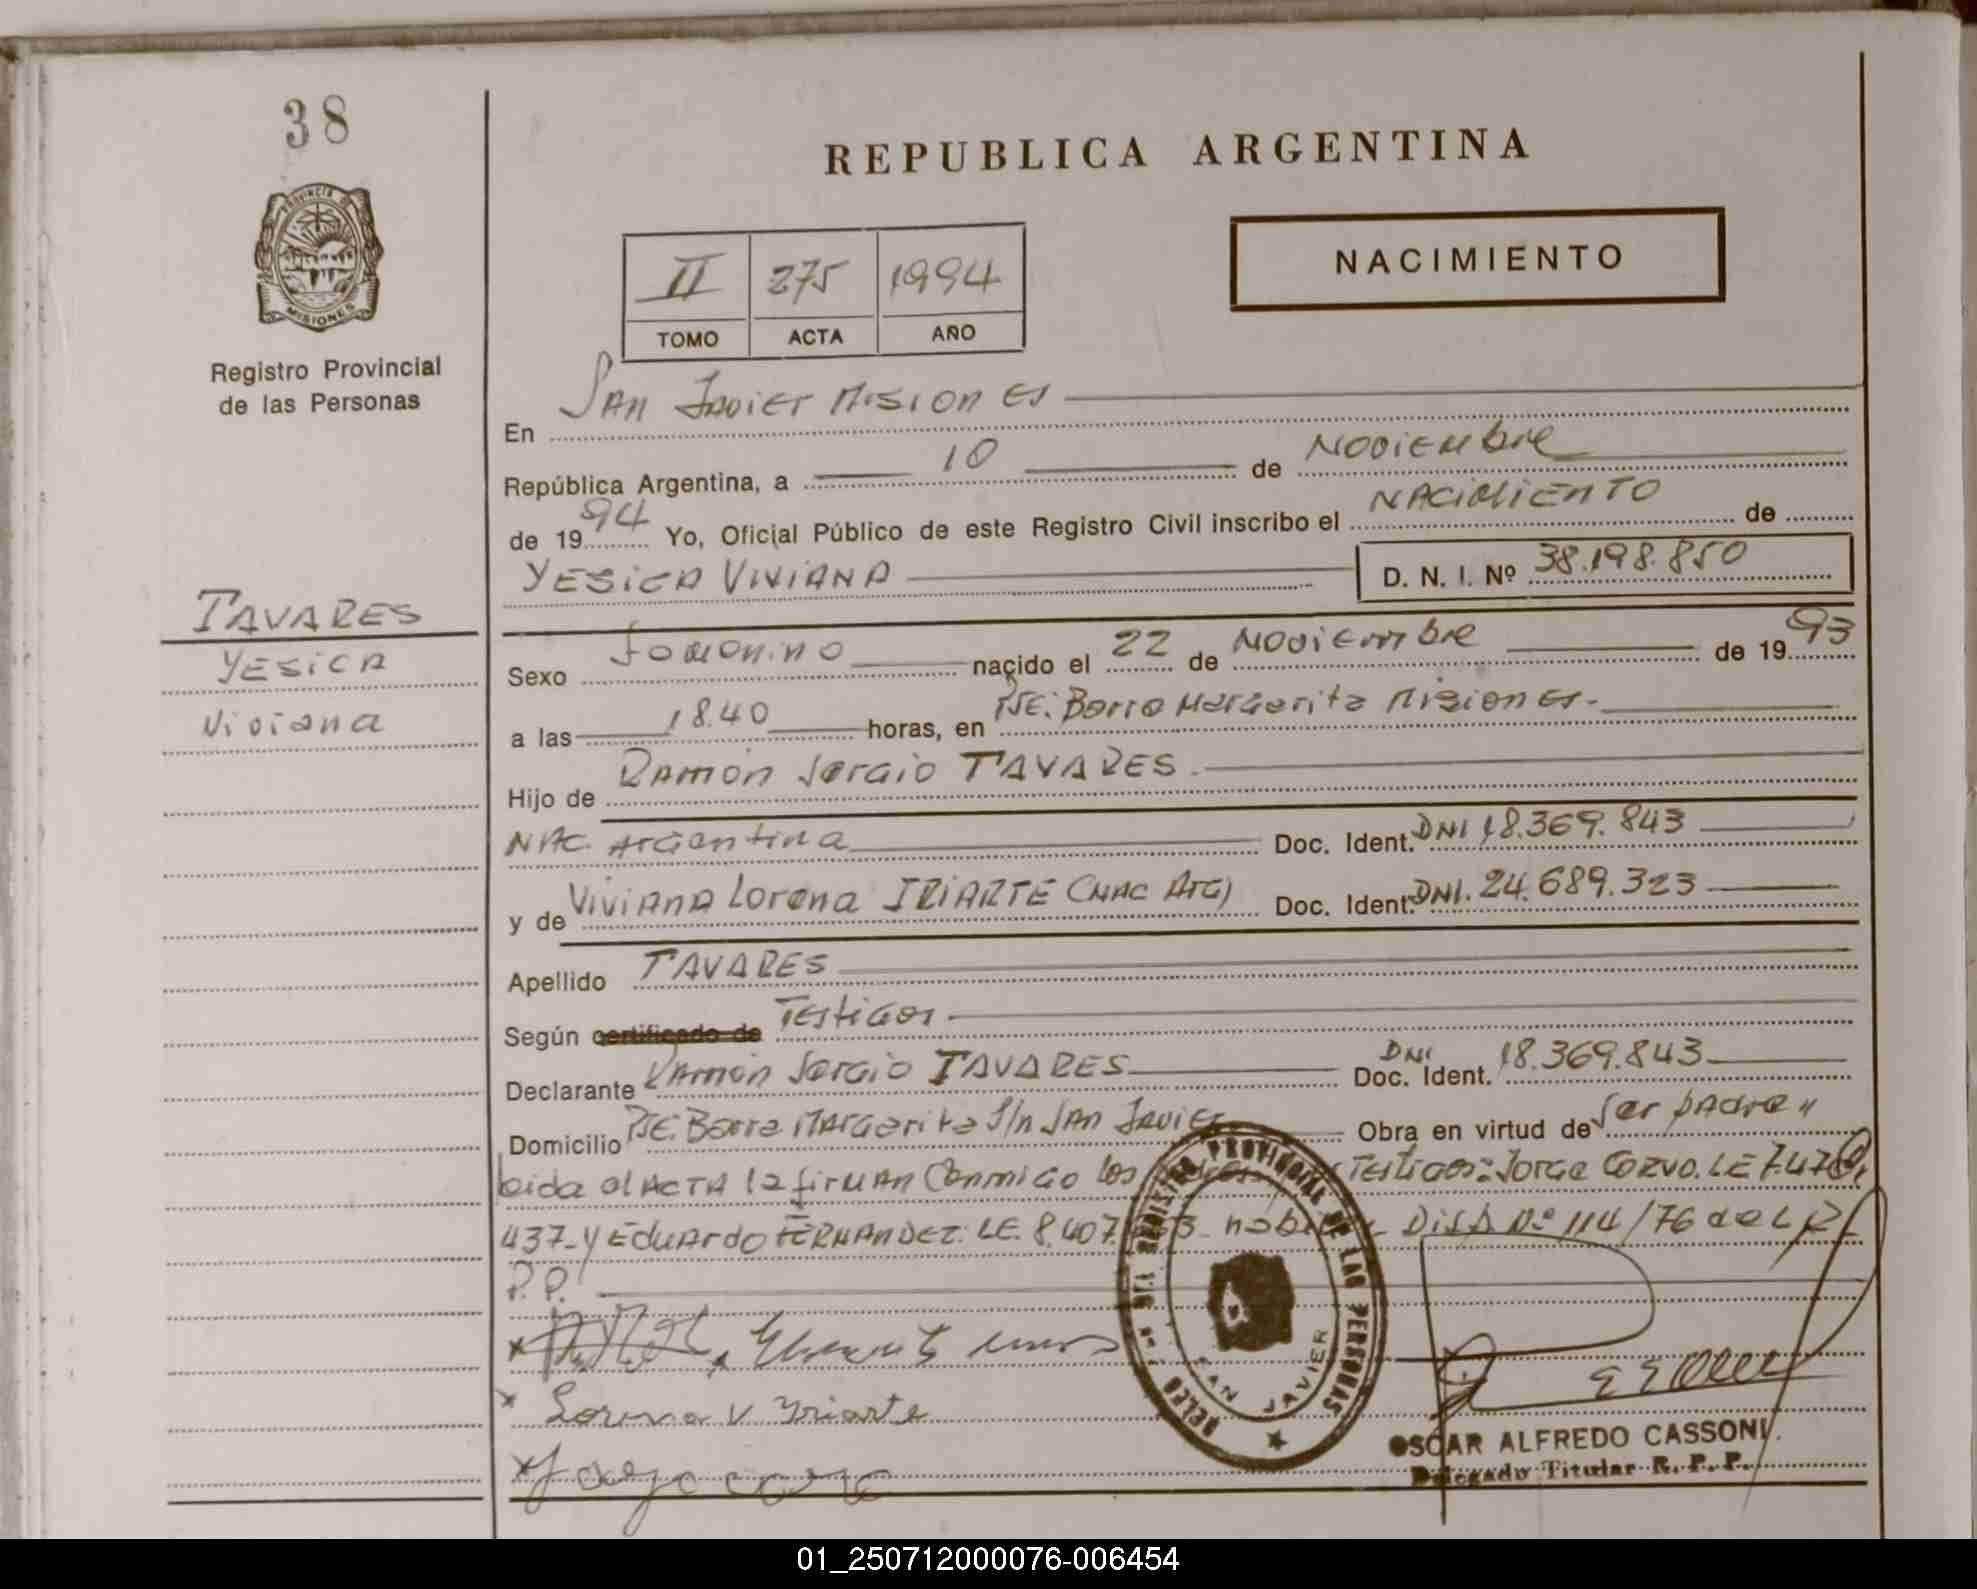 38
REPUBLICA ARGENTINA
PROVINCIA DE
MISIONES
NACIMIENTO
II 275 1994
TOMO ACTA AÑO
Registro Provincial
de las Personas
En San Javier Misiones
República Argentina, a 10 de Noviembre
de 1994 Yo, Oficial Público de este Registro Civil inscribo el NACIMIENTO de
YESICA VIVIANA D. N. I. Nº 38.198.850
TAVARES
YESICA
Viviana
Sexo Femenino nacido el 22 de Noviembre de 1993
a las 18.40 horas, en PJE. Barra Margarita Misiones.-
Hijo de Ramón Sergio TAVARES.
NAC. Argentina Doc. Ident. DNI 18.369.843
y de Viviana Lorena IRIARTE (NAC Arg) Doc. Ident. DNI. 24.689.323
Apellido TAVARES
Según certificado de Testigos
Declarante Ramón Sergio TAVARES Doc. Ident. DNI 18.369.843
Domicilio PJE. Barra Margarita S/n San Javier Obra en virtud de ser padre "
Leida el ACTA la firman Conmigo los Testigos: Jorge CORVO. LE 7.476.
437- y Eduardo FERNANDEZ. LE. 8.407. DISP. Nº 114/76 del R.
P.P.
Lorena V. Yriarte
REGISTRO PROVINCIAL DE LAS PERSONAS
SAN JAVIER
OSCAR ALFREDO CASSONI.
Delegado Titular R. P. P.
01_250712000076-006454